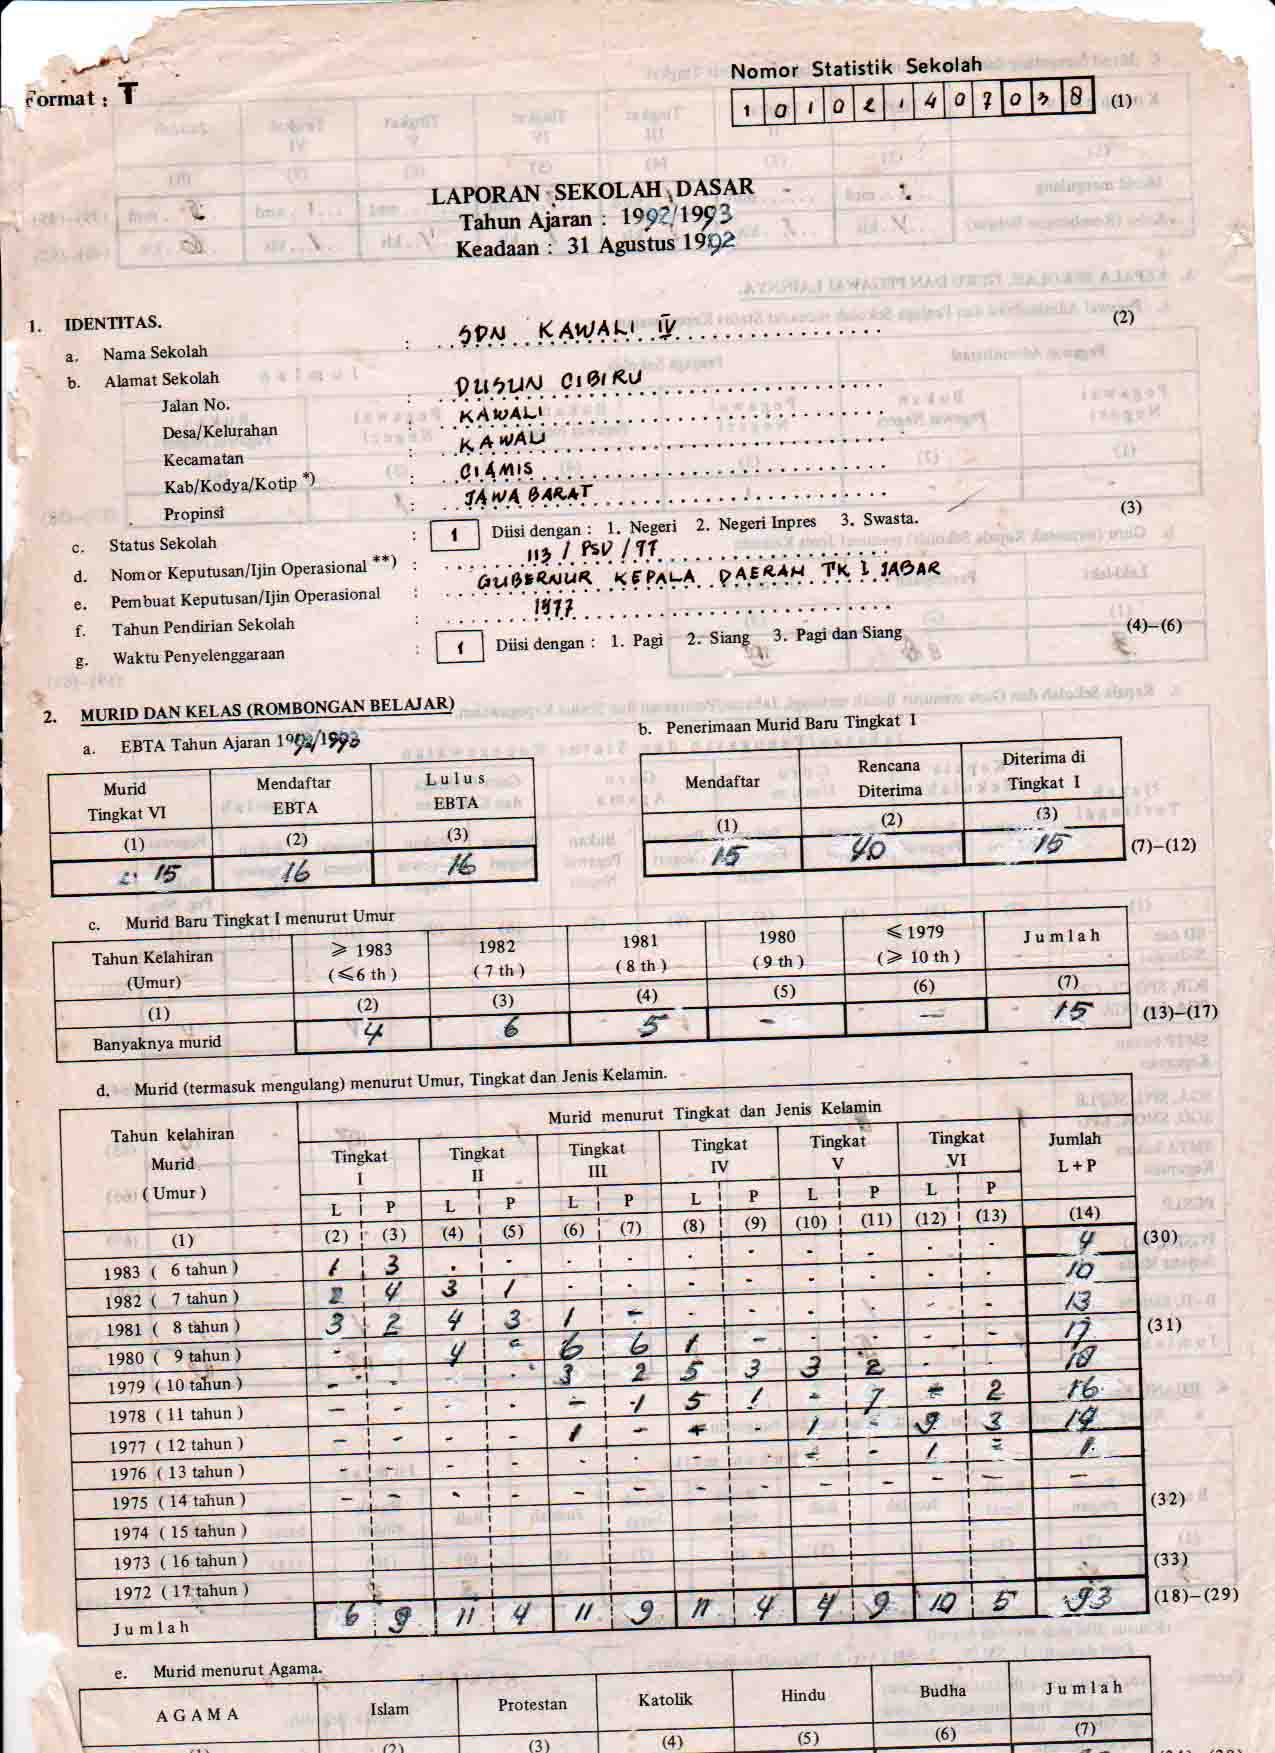 Format : T
Nomor Statistik Sekolah
1 0 1 0 2 1 4 0 7 0 3 8 (1)
LAPORAN SEKOLAH DASAR
Tahun Ajaran : 1992/1993
Keadaan : 31 Agustus 1992
1. IDENTITAS.
a. Nama Sekolah : SDN KAWALI IV (2)
b. Alamat Sekolah
Jalan No. : DUSUN CIBIRU
Desa/Kelurahan : KAWALI
Kecamatan : KAWALI
Kab/Kodya/Kotip *) : CIAMIS
Propinsi : JAWA BARAT
c. Status Sekolah : 1 Diisi dengan : 1. Negeri 2. Negeri Inpres 3. Swasta. (3)
d. Nomor Keputusan/Ijin Operasional **) : 113 / PSD / 77
e. Pembuat Keputusan/Ijin Operasional : GUBERNUR KEPALA DAERAH TK I JABAR
f. Tahun Pendirian Sekolah : 1977
g. Waktu Penyelenggaraan : 1 Diisi dengan : 1. Pagi 2. Siang 3. Pagi dan Siang (4)-(6)
2. MURID DAN KELAS (ROMBONGAN BELAJAR)
a. EBTA Tahun Ajaran 1992/1993
Murid Tingkat VI Mendaftar EBTA Lulus EBTA
(1) (2) (3)
15 16 16
b. Penerimaan Murid Baru Tingkat I
Mendaftar Rencana Diterima Diterima di Tingkat I
(1) (2) (3)
15 40 15 (7)-(12)
c. Murid Baru Tingkat I menurut Umur
Tahun Kelahiran ⩾ 1983 1982 1981 1980 ⩽ 1979 Jumlah
(Umur) (⩽6 th) (7 th) (8 th) (9 th) (⩾ 10 th)
(1) (2) (3) (4) (5) (6) (7)
Banyaknya murid 4 6 5 - - 15 (13)-(17)
d. Murid (termasuk mengulang) menurut Umur, Tingkat dan Jenis Kelamin.
Tahun kelahiran Murid (Umur) Murid menurut Tingkat dan Jenis Kelamin Jumlah L + P
Tingkat I Tingkat II Tingkat III Tingkat IV Tingkat V Tingkat VI
L P L P L P L P L P L P
(1) (2) (3) (4) (5) (6) (7) (8) (9) (10) (11) (12) (13) (14)
1983 ( 6 tahun ) 1 3 - - - - - - - - - - 4 (30)
1982 ( 7 tahun ) 2 4 3 1 - - - - - - - - 10
1981 ( 8 tahun ) 3 2 4 3 1 - - - - - - - 13
1980 ( 9 tahun ) - - 4 - 6 6 1 - - - - - 17 (31)
1979 ( 10 tahun ) - - - - 3 2 5 3 3 2 - - 18
1978 ( 11 tahun ) - - - - - 1 5 1 - 7 - 2 16
1977 ( 12 tahun ) - - - - 1 - - - 1 - 9 3 14
1976 ( 13 tahun ) - - - - - - - - - - 1 - 1
1975 ( 14 tahun ) - - - - - - - - - - - - -
1974 ( 15 tahun ) (32)
1973 ( 16 tahun )
1972 ( 17 tahun ) (33)
Jumlah 6 9 11 4 11 9 11 4 4 9 10 5 93 (18)-(29)
e. Murid menurut Agama.
AGAMA Islam Protestan Katolik Hindu Budha Jumlah
(2) (3) (4) (5) (6) (7)